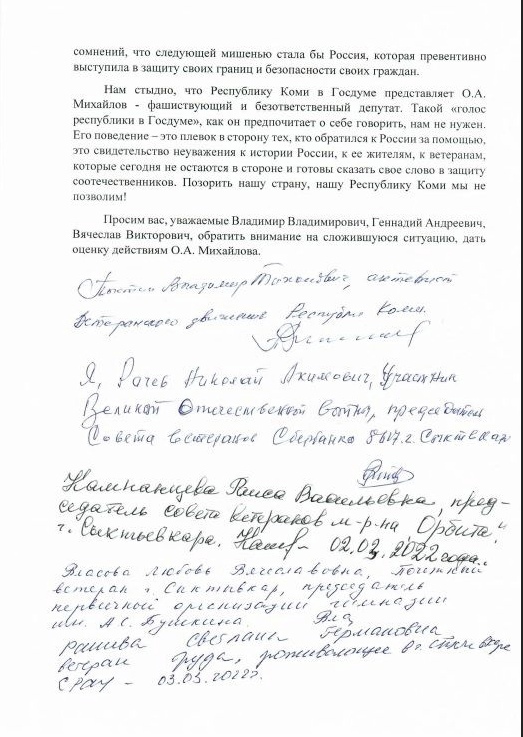 сомнений, что следующей мишенью стала бы Россия, которая превентивно
выступила в защиту своих границ и безопасности своих граждан.
Нам стыдно, что Республику Коми в Госдуме представляет О.А.
Михайлов - фашиствующий и безответственный депутат. Такой «голос
республики в Госдуме», как он предпочитает о себе говорить, нам не нужен.
Его поведение – это плевок в сторону тех, кто обратился к России за помощью,
это свидетельство неуважения к истории России, к ее жителям, к ветеранам,
которые сегодня не остаются в стороне и готовы сказать свое слово в защиту
соотечественников. Позорить нашу страну, нашу Республику Коми мы не
позволим!
Просим вас, уважаемые Владимир Владимирович, Геннадий Андреевич,
Вячеслав Викторович, обратить внимание на сложившуюся ситуацию, дать
оценку действиям О.А. Михайлова.
Владимир активист
Ветеранского движения Республики Коми.
Я, Рачев Николай Акимович, участник
Великой Отечественной войны, председатель
Совета ветеранов Сбербанка 8617 г. Сыктывкар
Раиса Васильевна, пред-
седатель совета ветеранов м-р-на „Орбита"
г. Сыктывкара. 2022 года.
Власова Любовь Вячеславовна,
ветеран г. Сыктывкар, председатель
первичной организации гимназии
им. А.С. Пушкина.
Светлана Германовна
ветеран труда, в г.
03.03.2022г.